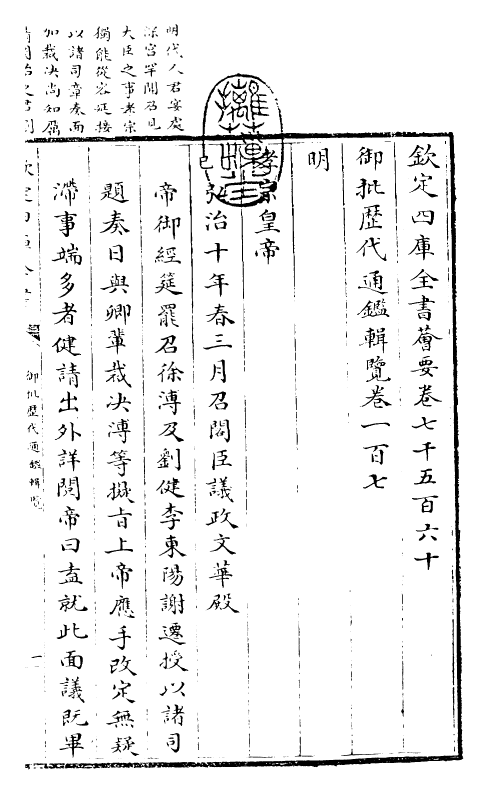 欽定四庫全書薈要卷七千五百六十
御批歷代通鑑輯覽卷一百七
明
孝宗皇帝
弘治十年春三月召閣臣議政文華殿
帝御經筵罷召徐溥及劉健李東陽謝遷授以諸司
題奏曰與卿輩裁决溥等擬旨上帝應手改定無疑
滯事端多者健請出外詳閱帝曰盍就此面議既畢
明代人君安處
深宮罕聞召見
大臣之事孝宗
獨能從容延接
以諸司章奏面
加裁决尚知厲
御批歷代通鑑輯覽
一